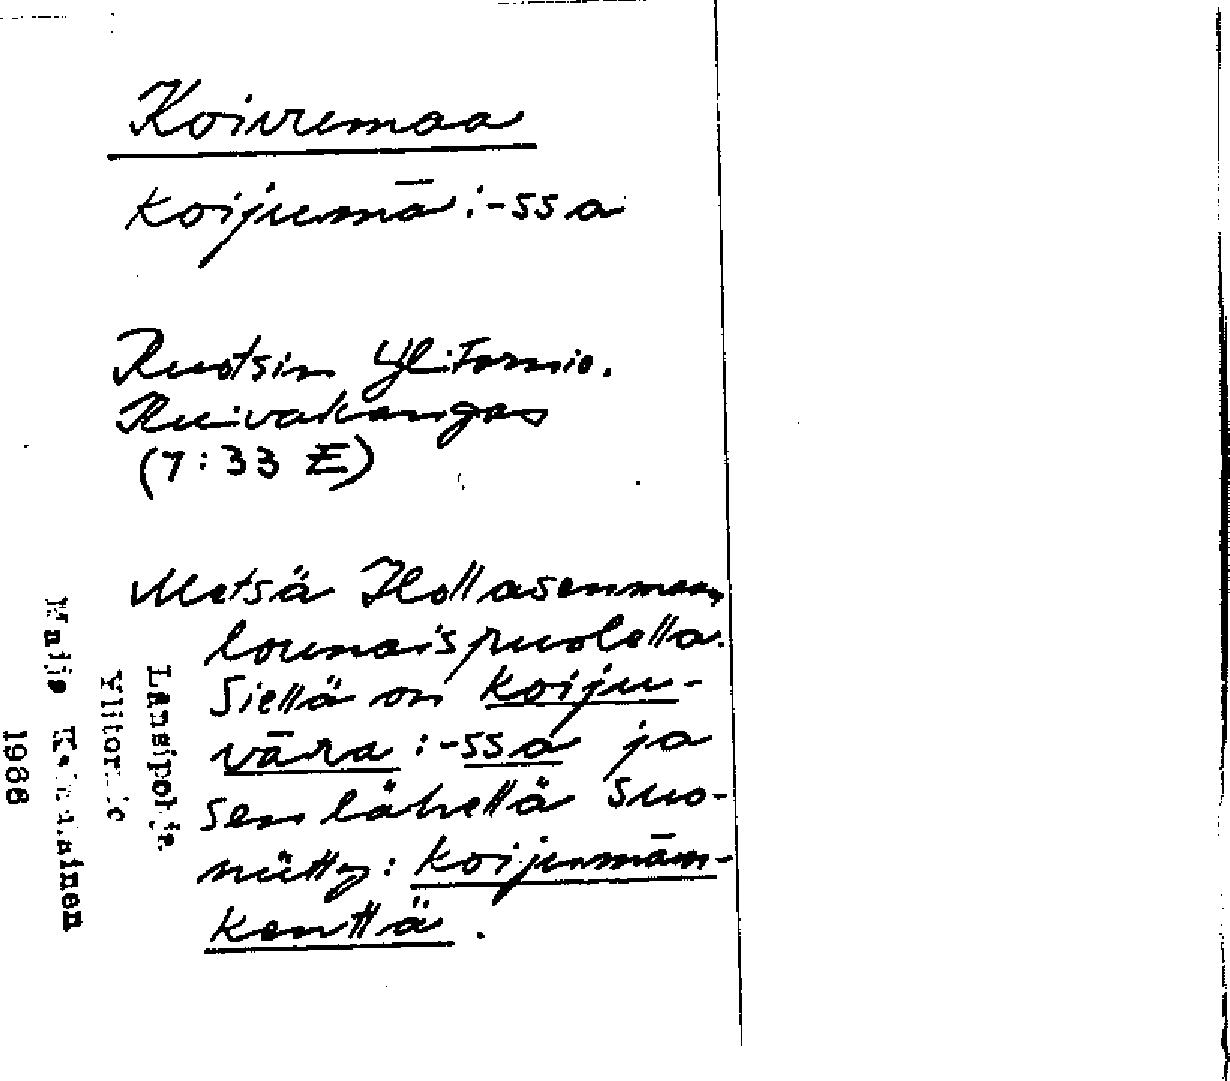 Koivumaa
koijumā :-ssa
Ruotsin Ylitornio.
Kuivakangas
(7:33 E)
Metsä Hollasenmaan
lounaispuolella.
Siellä on koiju-
vāra :-ssa ja
sen lähellä suo-
niitty: koijumān-
kenttä.
Länsipohja
Ylitornio